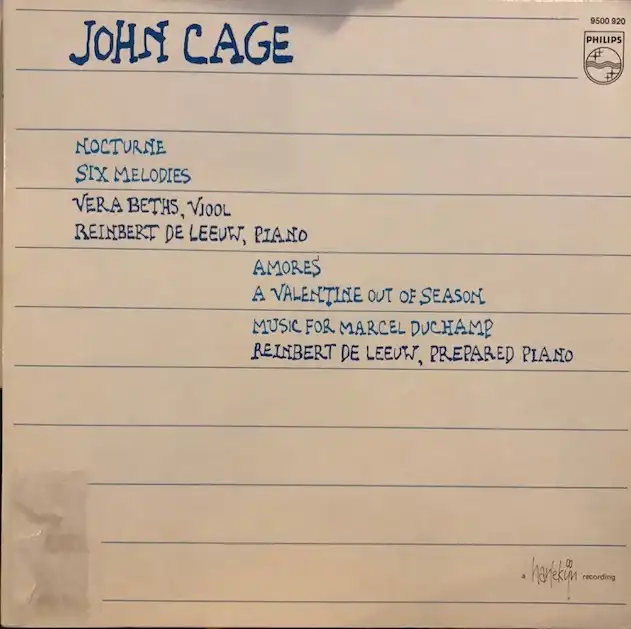 JOHN CAGE
9500 920
PHILIPS
NOCTURNE
SIX MELODIES
VERA BETHS, VIOOL
REINBERT DE LEEUW, PIANO
AMORES
A VALENTINE OUT OF SEASON
MUSIC FOR MARCEL DUCHAMP
REINBERT DE LEEUW, PREPARED PIANO
a harlekijn recording